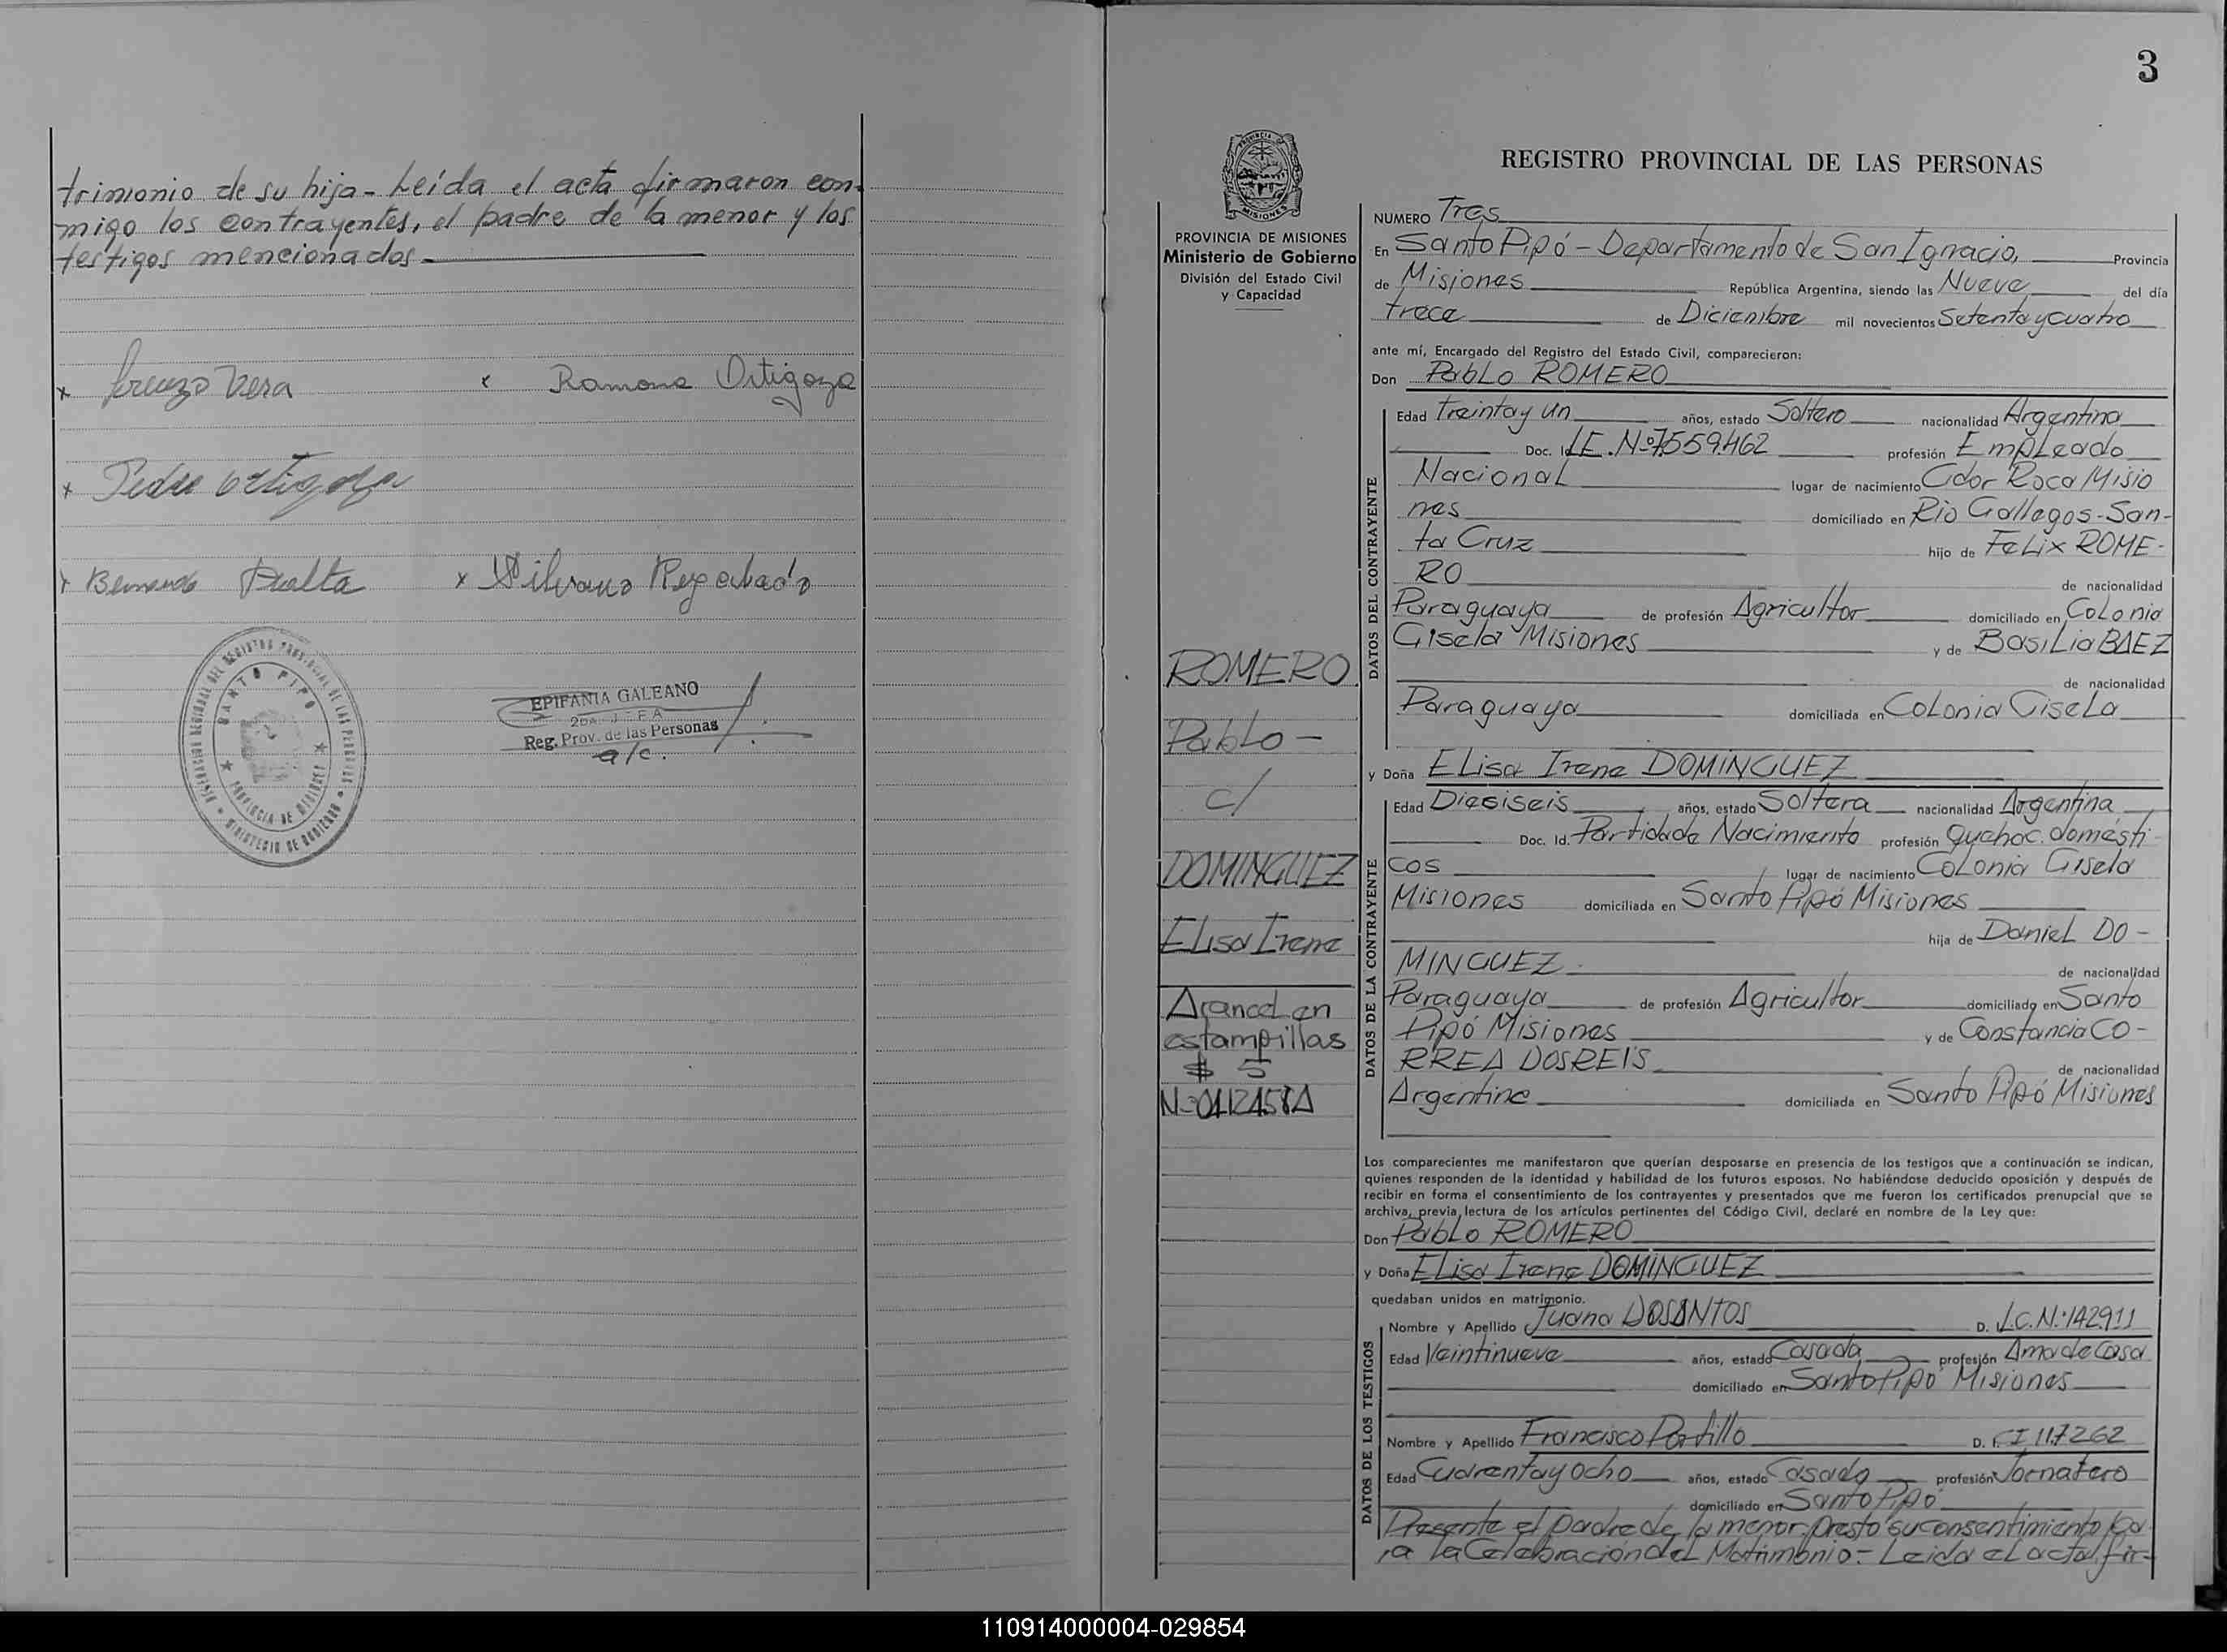 trimonio de su hija - Leída el acta firmaron con-
migo los contrayentes, el padre de la menor y los
testigos mencionados.
x Lorenzo Vera x Ramona Ortigoza
x Pedro Ortigoza
x Bernardo Peralta x Silvano
SANTO PIPO
PROVINCIA DE MISIONES
MINISTERIO DE GOBIERNO
EPIFANIA GALEANO
Reg. Prov. de las Personas
a/c.
3
PROVINCIA DE MISIONES
Ministerio de Gobierno
División del Estado Civil
y Capacidad
ROMERO
Pablo -
c/
DOMINGUEZ
Elisa Irene
Arancel en
estampillas
$ 5
REGISTRO PROVINCIAL DE LAS PERSONAS
NUMERO Tres
En Santo Pipó - Departamento de San Ignacio, Provincia
de Misiones República Argentina, siendo las Nueve del día
trece de Diciembre mil novecientos Setenta y cuatro
ante mí, Encargado del Registro del Estado Civil, comparecieron:
Don Pablo ROMERO
DATOS DEL CONTRAYENTE
Edad Treinta y un años, estado Soltero nacionalidad Argentina
Doc. Id. L.E. Nº 7.559.462 profesión Empleado
Nacional lugar de nacimiento Gdor Roca Misio
nes domiciliado en Rio Gallegos - San-
ta Cruz hijo de Felix ROME-
RO de nacionalidad
Paraguaya de profesión Agricultor domiciliado en Colonia
Gisela Misiones y de Basilia BAEZ
de nacionalidad
Paraguaya domiciliada en Colonia Gisela
y Doña Elisa Irene DOMINGUEZ
DATOS DE LA CONTRAYENTE
Edad Dieciseis años, estado Soltera nacionalidad Argentina
Doc. Id. Partida de Nacimiento profesión Quehac. domésti-
cos lugar de nacimiento Colonia Gisela
Misiones domiciliada en Santo Pipó Misiones
hija de Daniel DO-
MINGUEZ de nacionalidad
Paraguaya de profesión Agricultor domiciliado en Santo
Pipó Misiones y de Constancia CO-
RREA DOSREIS de nacionalidad
Argentina domiciliada en Santo Pipó Misiones
Los comparecientes me manifestaron que querían desposarse en presencia de los testigos que a continuación se indican,
quienes responden de la identidad y habilidad de los futuros esposos. No habiéndose deducido oposición y después de
recibir en forma el consentimiento de los contrayentes y presentados que me fueron los certificados prenupcial que se
archiva, previa lectura de los artículos pertinentes del Código Civil, declaré en nombre de la Ley que:
Don Pablo ROMERO
y Doña Elisa Irene DOMINGUEZ
quedaban unidos en matrimonio.
DATOS DE LOS TESTIGOS
Nombre y Apellido Juana DOSANTOS D. L.C. Nº 142911
Edad Veintinueve años, estado Casada profesión Ama de Casa
domiciliado en Santo Pipó Misiones
Nombre y Apellido Francisco Portillo D. I. C I 117262
Edad Cuarenta y Ocho años, estado Casado profesión Jornalero
domiciliado en Santo Pipó
Presente el padre de la menor, presto su consentimiento pa
ra la Celebración del Matrimonio - Leida el acta, fir-
110914000004-029854